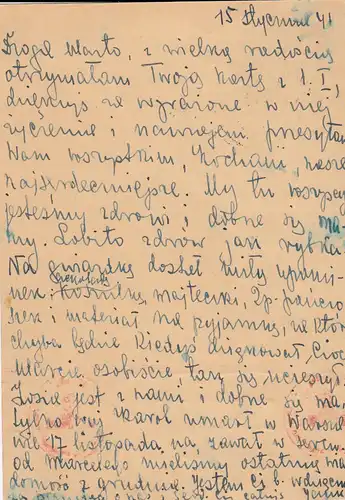 15 Stycznia 41
Droga Marto, z wielką radością
otrzymałam Twoją kartę z 1. I,
dziękuję za wyrażone w niej
życzenia i nawzajem przesyłam
Wam wszystkim, Kochani, nasze
najserdeczniejsze. My tu wszyscy
jesteśmy zdrowi i dobrze się ma-
my. Lobito zdrów jak rybka
Na gwiazdkę dostał miły upomi-
nek: koszulkę, majteczki, 2 p. pończo-
szek i materiał na pyjamę, za które
chyba będzie kiedyś dziękował Cioci
Marcie osobiście, tak się ucieszył.
Zosia jest z nami i dobrze się ma,
tylko Karol umarł w Warsza-
wie 17 listopada na zawał serca
od mieliśmy ostatnią wia-
domość z grudnia. Jestem Ci b. wdzięczna